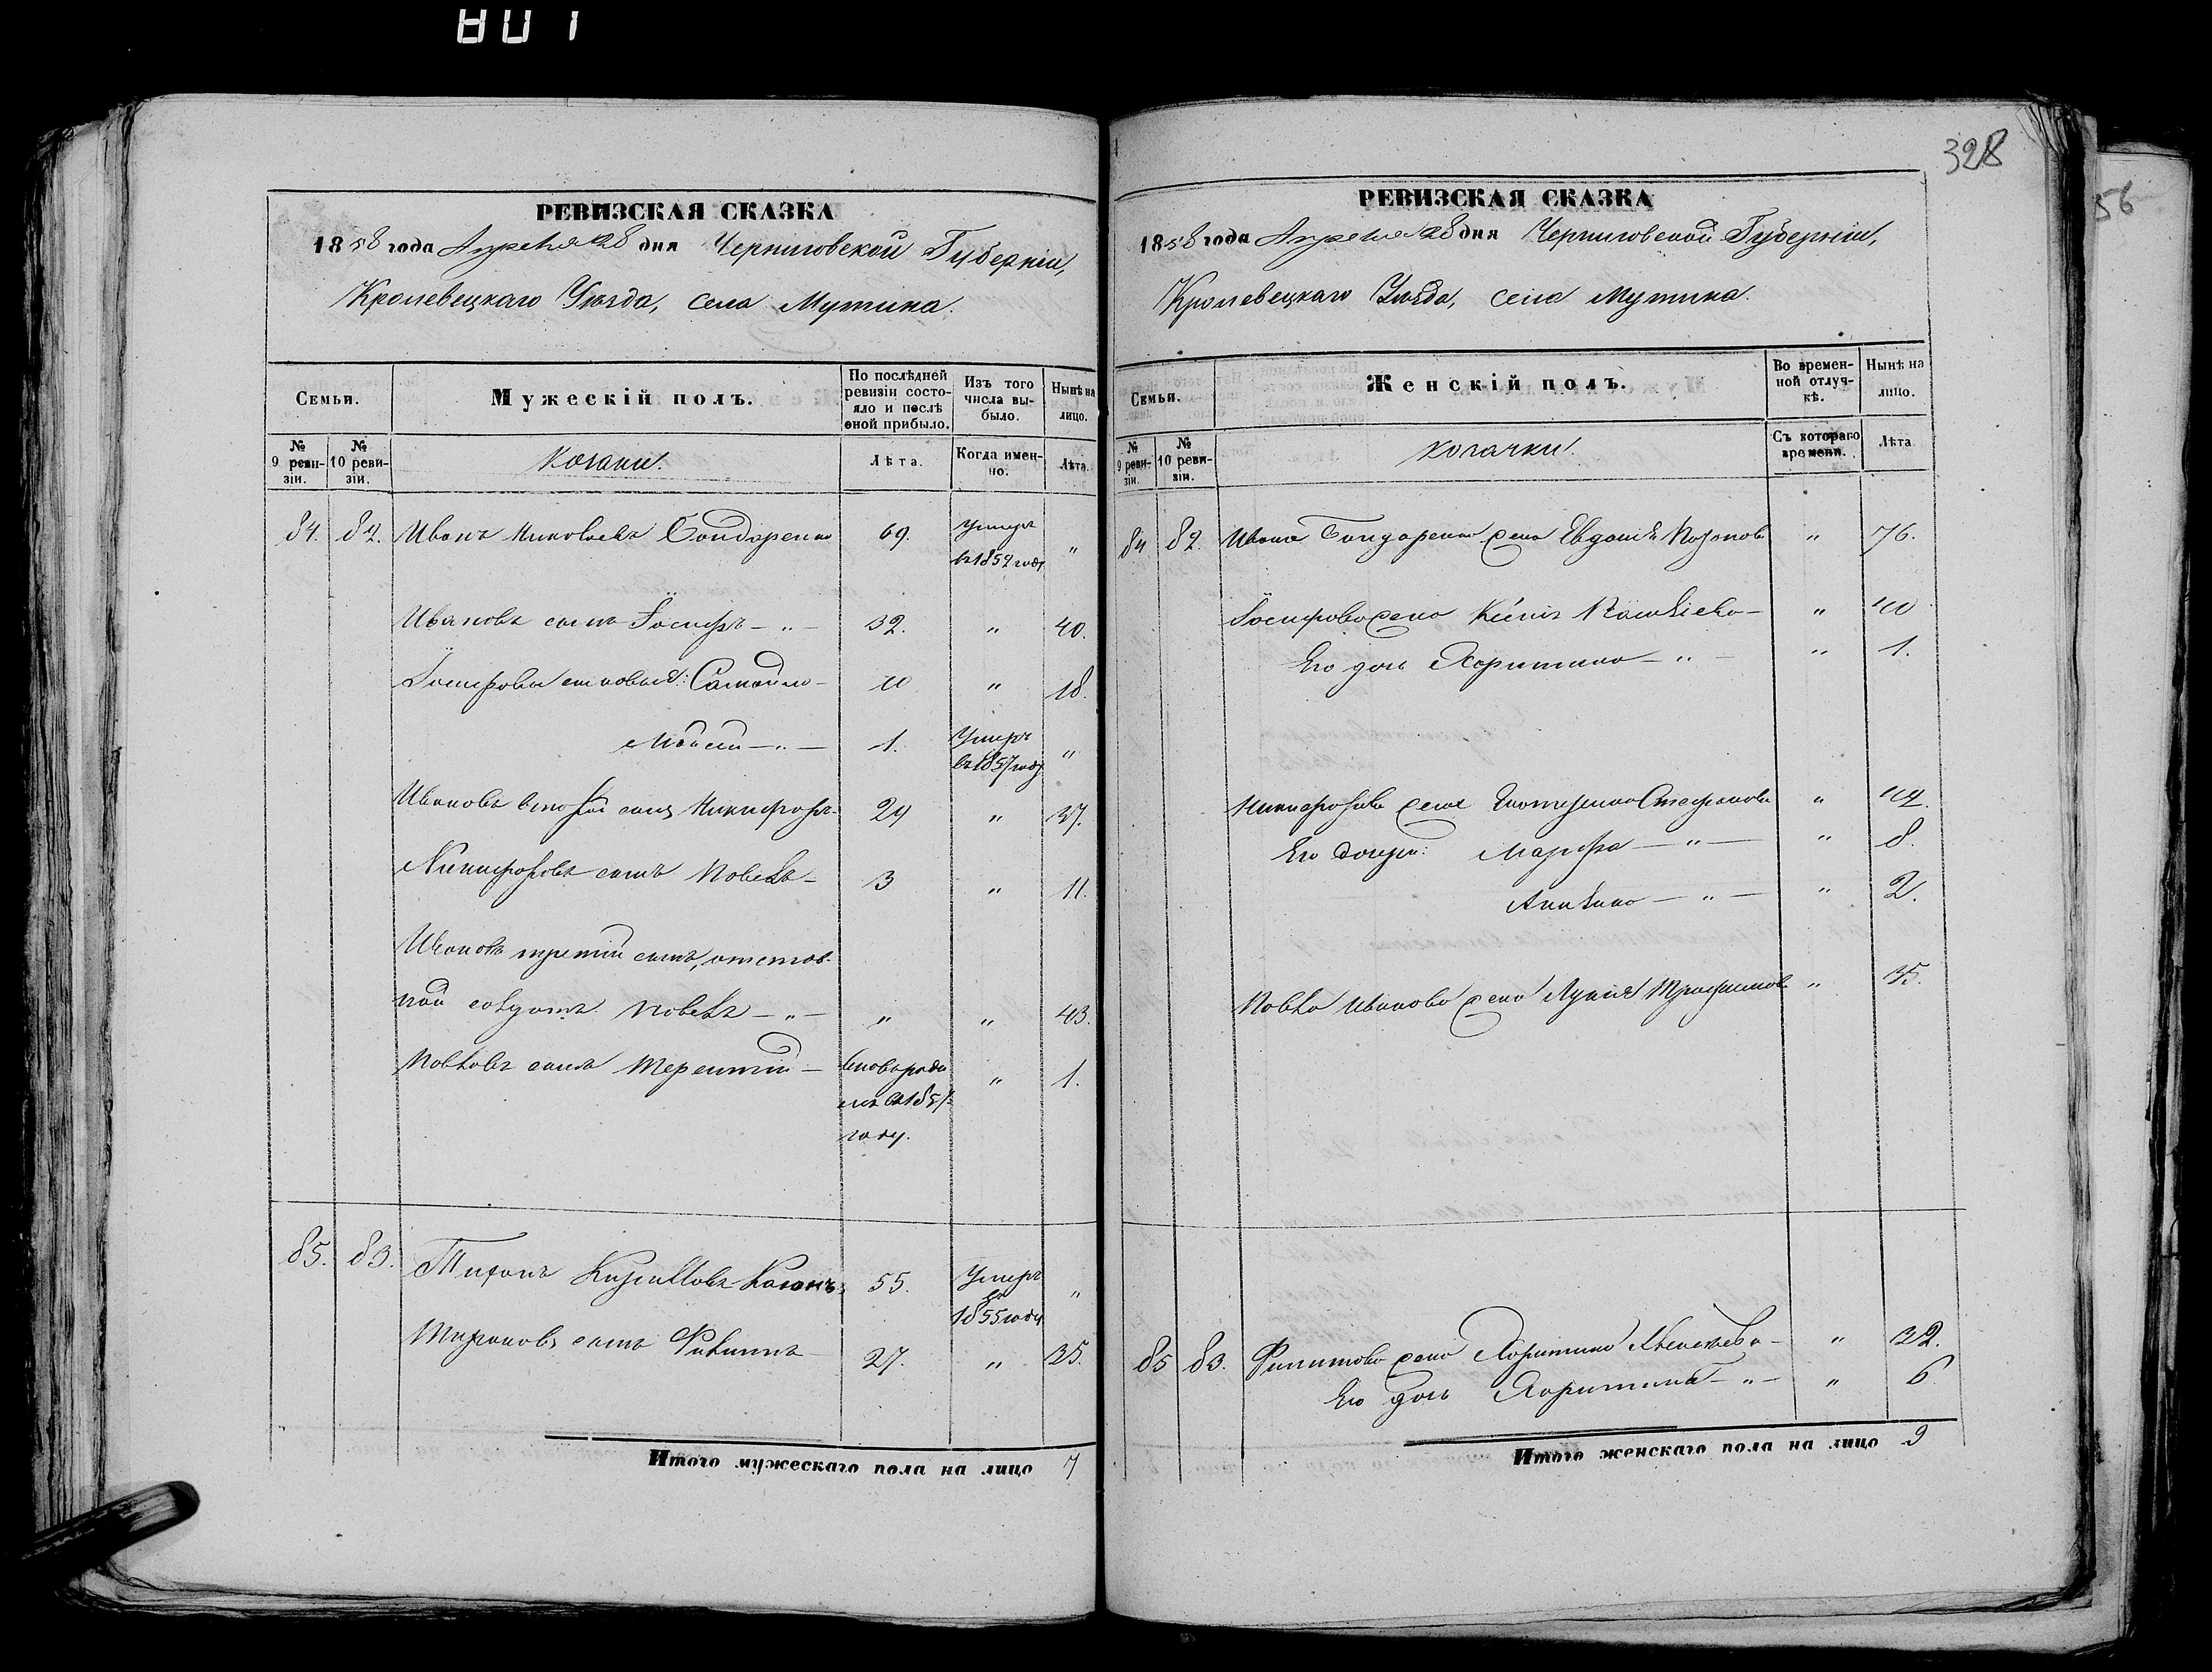 801
328
56
РЕВИЗСКАЯ СКАЗКА
1858 года Апреля 28 дня Черниговской Губерніи,
Кролевецкаго Уѣзда, села Мутина.
Семьи.
Мужескій полъ.
По послѣдней ревизіи состояло и послѣ оной прибыло.
Изъ того числа выбыло.
Нынѣ на лицо.
№ 9 ревизіи.
№ 10 ревизіи.
Козаки.
Лѣта.
Когда именно.
Лѣта.
84. 82. Иванъ Николаевъ Бондаренко 69. Умеръ въ 1852 году "
Ивановъ сынъ Іосифъ — " — 32. " 40.
Іосифовы сыновья: Самойло — 10 " 18.
Моисей — " — 1. Умеръ въ 1857 году "
Ивановъ второй сынъ Никифоръ 29 " 37.
Никифоровъ сынъ Павелъ — 3 " 11.
Ивановъ третій сынъ, отстав-
ной солдатъ Павелъ — " — " " 43.
Павловъ сынъ Терентій — вновь роди
лся въ 1857
году. " 1.
85. 83. Тихонъ Кириловъ 55. Умеръ въ 1855 году "
Тихоновъ сынъ Филипъ 27. " 35.
Итого мужескаго пола на лицо 7
РЕВИЗСКАЯ СКАЗКА
1858 года Апреля 28 дня Черниговской Губерніи,
Кролевецкаго Уѣзда, села Мутина.
Семьи.
Женскій полъ.
Во временной отлучкѣ.
Нынѣ на лицо.
№ 9 ревизіи.
№ 10 ревизіи.
Козачки.
Съ котораго времени.
Лѣта
84 82. Ивана Бондаренка жена Евдокія " 76.
Іосифова жена " 40
Его дочь Харитина — " — " 1.
Никифорова жена Катерина Стефанова " 42.
Его дочери: Марфа — " — " 8.
Акилина — " — " 2.
Павла Иванова жена Лукія Трофимова " 35.
85 83. Филипова жена Харитина " 32.
Его дочь Харитина — " — " 6
Итого женскаго пола на лицо 9